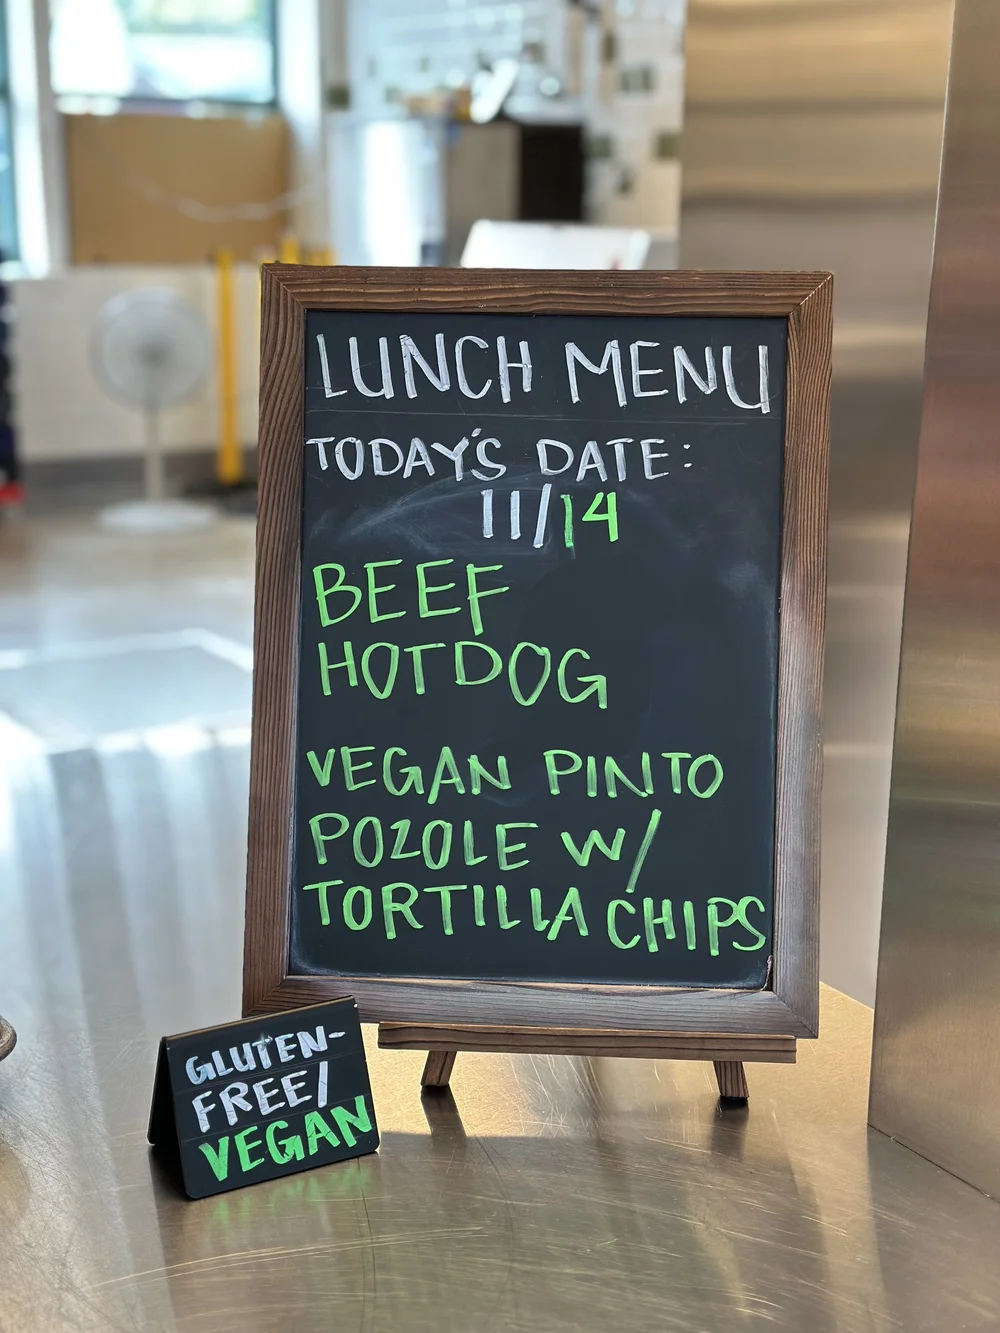 LUNCH MENU
TODAY'S DATE:
11/14
BEEF
HOTDOG
VEGAN PINTO
POZOLE W/
TORTILLA CHIPS
GLUTEN-
FREE/
VEGAN